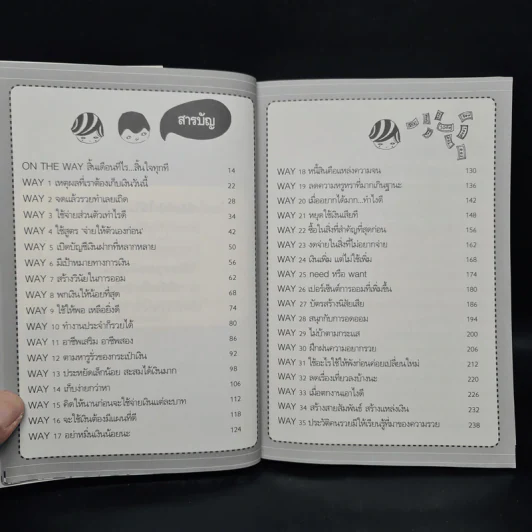 สารบัญ
ON THE WAY สิ้นเดือนทีไร...สิ้นใจทุกที 14
WAY 1 เหตุผลที่เราต้องเก็บเงินวันนี้ 22
WAY 2 จดแล้วรวยทำเลยเถิด 28
WAY 3 ใช้จ่ายส่วนตัวเท่าไรดี 34
WAY 4 ใช้สูตร 'จ่ายให้ตัวเองก่อน' 42
WAY 5 เปิดบัญชีเงินฝากที่หลากหลาย 50
WAY 6 มีเป้าหมายทางการเงิน 56
WAY 7 สร้างวินัยในการออม 62
WAY 8 พกเงินให้น้อยที่สุด 68
WAY 9 ใช้ให้พอ เหลือยิ่งดี 74
WAY 10 ทำงานประจำก็รวยได้ 80
WAY 11 อาชีพเสริม อาชีพสอง 86
WAY 12 ตามหารูรั่วของกระเป๋าเงิน 92
WAY 13 ประหยัดเล็กน้อย สะสมได้เงินมาก 98
WAY 14 เก็บง่ายกว่าหา 106
WAY 15 คิดให้นานก่อนจะใช้จ่ายเงินแต่ละบาท 112
WAY 16 จะใช้เงินต้องมีแผนที่ดี 118
WAY 17 อย่าหมิ่นเงินน้อยนะ 124
WAY 18 หนี้สินคือแหล่งความจน 130
WAY 19 ลดความหรูหราที่มากเกินฐานะ 136
WAY 20 เมื่ออยากได้มาก...ทำไงดี 142
WAY 21 หยุดใช้เงินเสียที 148
WAY 22 ซื้อในสิ่งที่สำคัญที่สุดก่อน 156
WAY 23 งดจ่ายในสิ่งที่ไม่อยากจ่าย 162
WAY 24 เงินเพิ่ม แต่ไม่ใช้เพิ่ม 168
WAY 25 need หรือ want 174
WAY 26 เปอร์เซ็นต์การออมที่เพิ่มขึ้น 180
WAY 27 บัตรสร้างนิสัยเสีย 186
WAY 28 สนุกกับการอดออม 194
WAY 29 ไม่บ้าตามกระแส 200
WAY 30 ฝึกฝนความอยากรวย 206
WAY 31 ใช้อะไรใช้ให้พังก่อนค่อยเปลี่ยนใหม่ 212
WAY 32 ลดเรื่องเที่ยวลงบ้างนะ 220
WAY 33 เมื่อตกงานเอาไงดี 226
WAY 34 สร้างสายสัมพันธ์ สร้างแหล่งเงิน 232
WAY 35 ประวัติคนรวยมีให้เรียนรู้ที่มาของความรวย 238